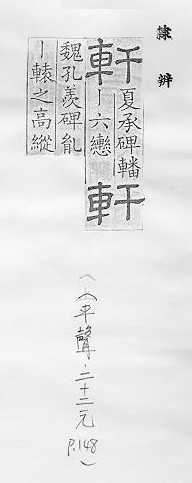 隸辨
軒 夏承碑轓
丨六轡
軒 魏孔羨碑胤
丨轅之高縱
(上平聲·二十二元 P.148)